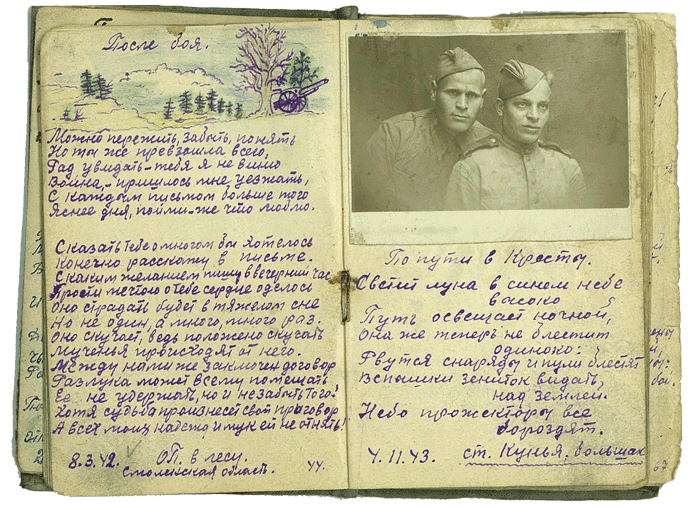 После боя.
Можно пережить, забыть, понять
Но ты же превзошла всего,
Рад увидать-тебя я не виню
Война,- пришлось мне уезжать,
С каждым письмом больше того
Яснее дня, пойми-же что люблю.
Сказать тебе о многом бы хотелось
Конечно расскажу в письме.
С каким желанием пишу в вечерний час
Прости жестоко тебе сердце оделось
Оно страдать будет в тяжелом сне
Но не один, а много, много раз.
Оно скучает, ведь положено скучать
Мученья происходят от него.
Между нами же заключен договор
Разлука может всему помешать
Ее не удержать, но и незабыть того!
Хотя судьба произнесет свой приговор
А всех моих надежд и мук ей не отнять!
8.3.42. ОП. в лесу.
Смоленская область. 44.
По пути в Кресты.
Светит луна в синем небе
высоко
Путь освещает ночной,
Она же теперь не блестит
одиноко:
Рвутся снаряды и пули блестят
Вспышки зениток видать,
над землей.
Небо прожекторы все
бороздят.
4.11.43. ст. Кунья. большак